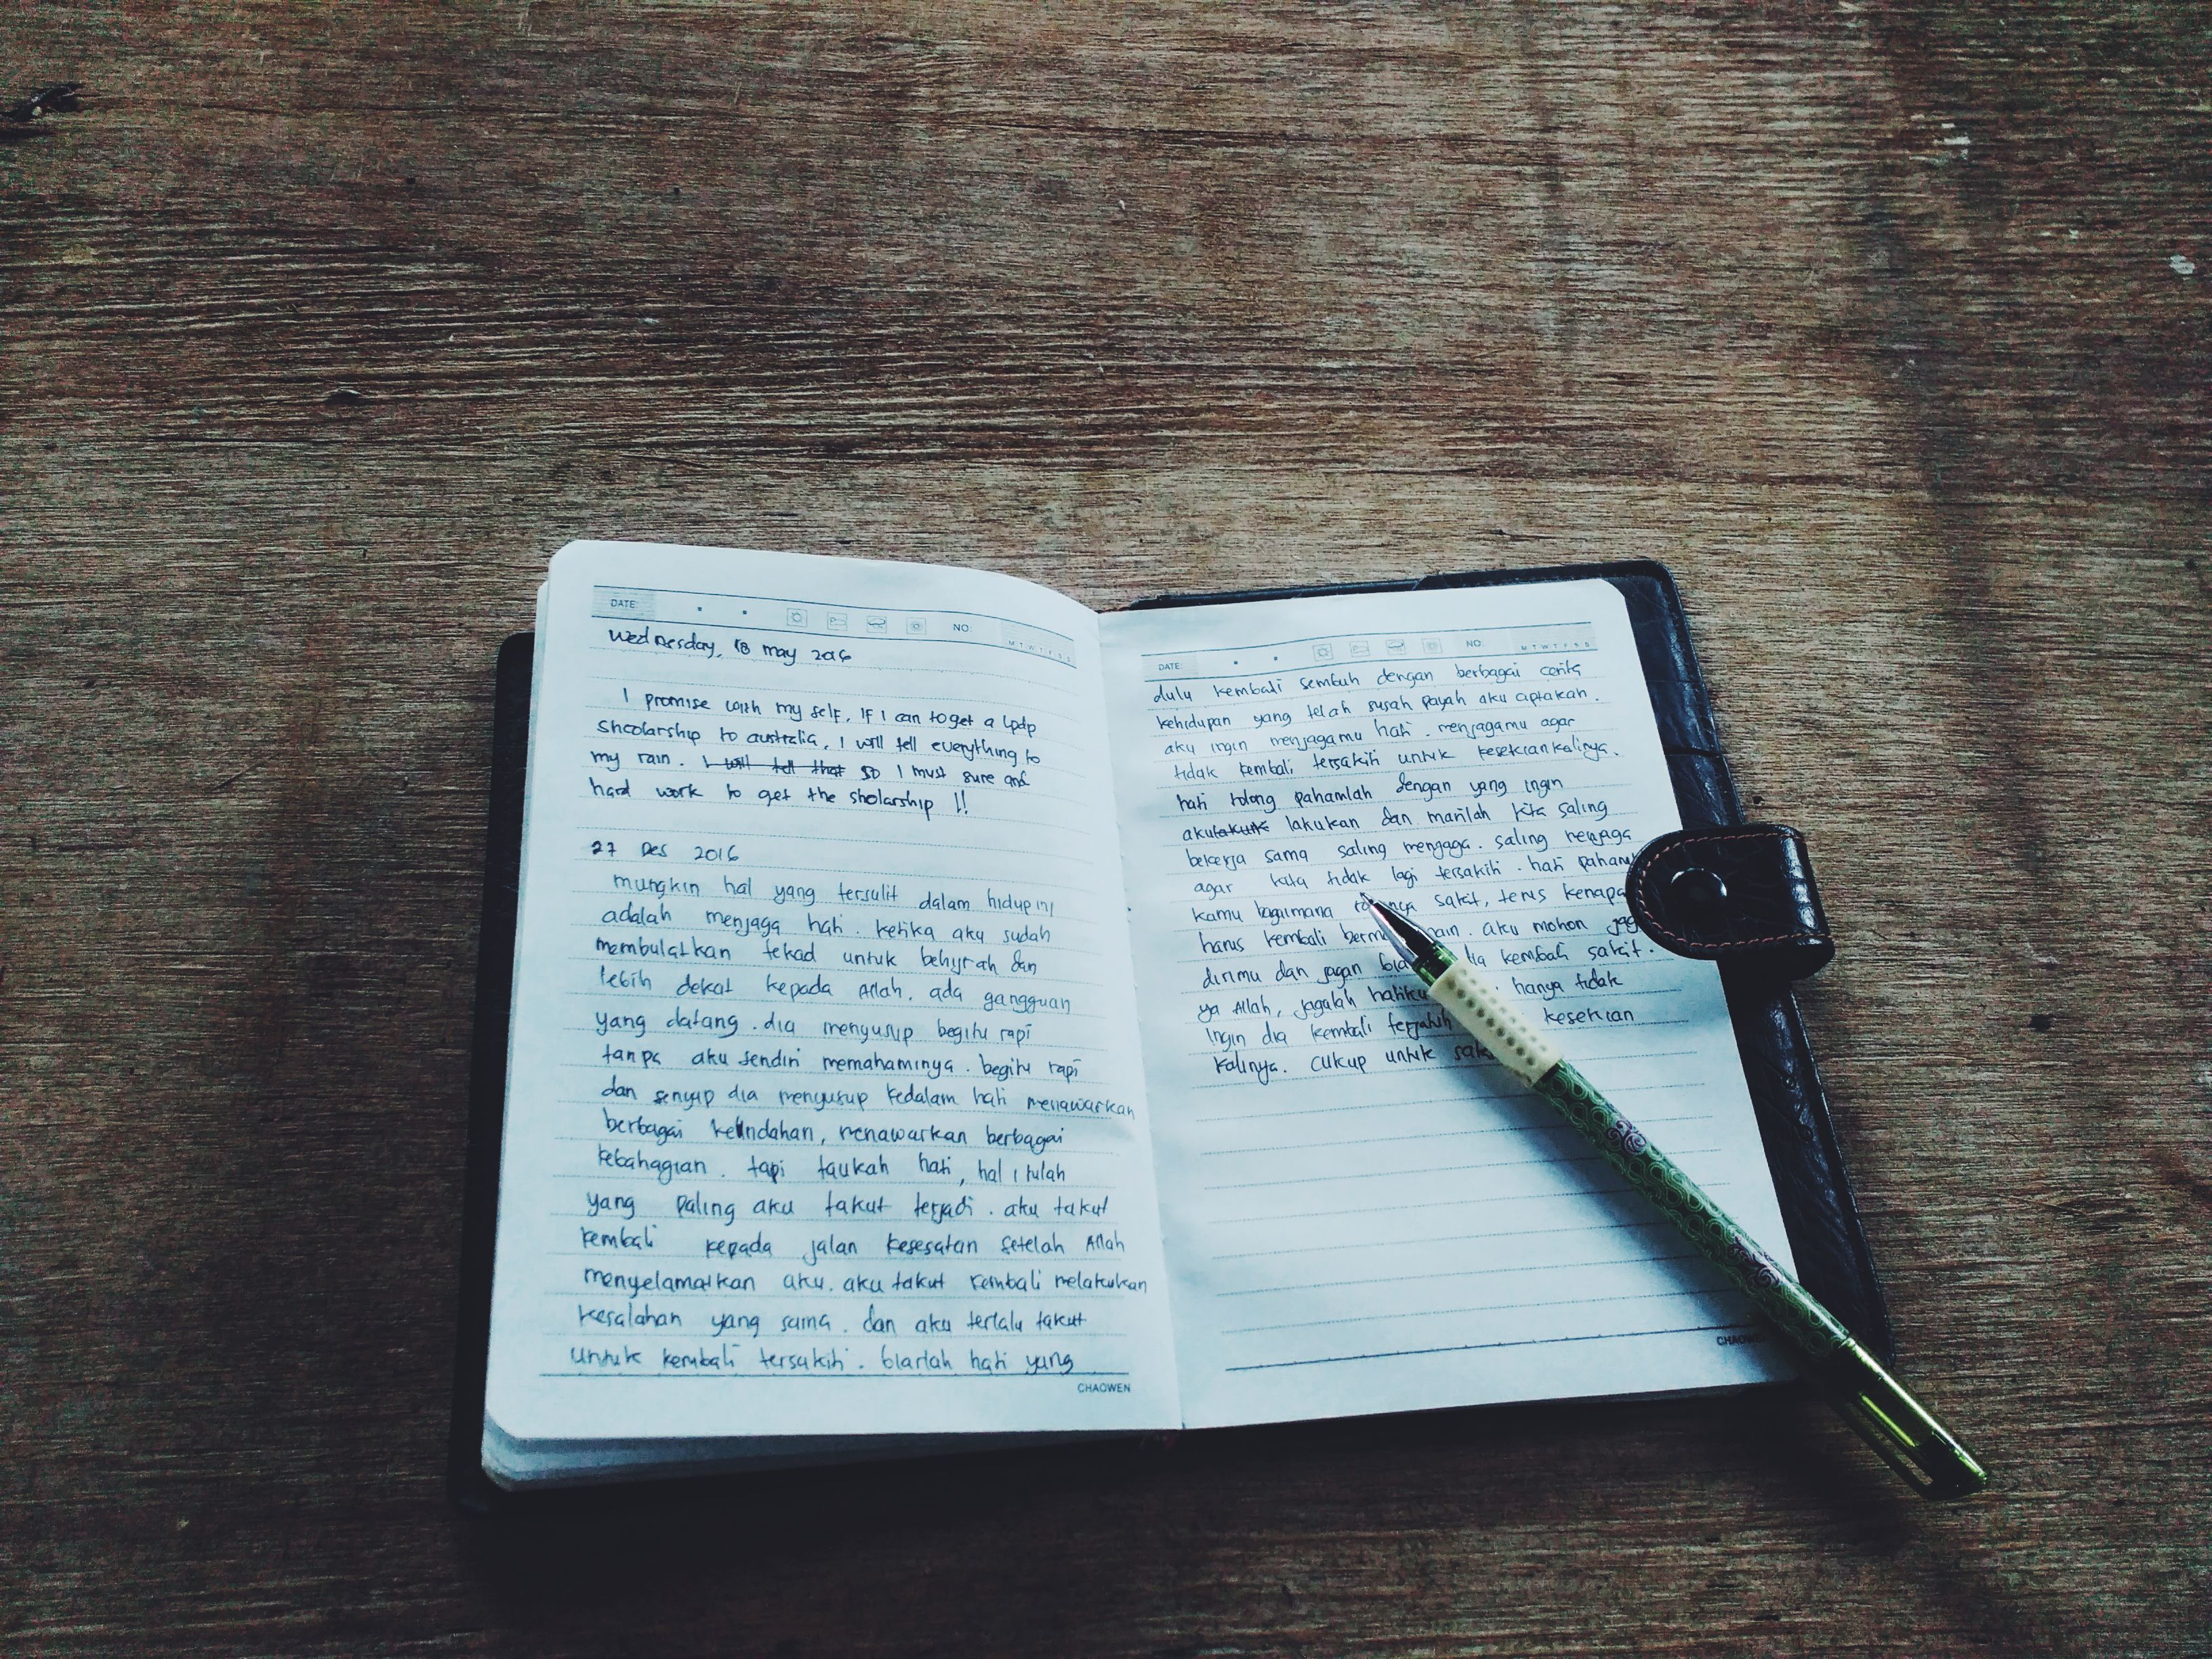 DATE: NO:
M T W T F S S
Wednesday, 18 may 2016
I promise with my self, If I can to get a Lpdp
Shcolarship to australia, I will tell everything to
my rain. I will tell that so I must sure and
hard work to get the sholarship !!
27 Des 2016
mungkin hal yang tersulit dalam hidup ini
adalah menjaga hati. ketika aku sudah
membulatkan tekad untuk behijrah dan
lebih dekat kepada Allah, ada gangguan
yang datang. dia menyusup begitu rapi
tanpa aku sendiri memahaminya. begitu rapi
dan senyap dia menyusup kedalam hati menawarkan
berbagai keindahan, menawarkan berbagai
kebahagian. tapi taukah hati, hal itulah
yang paling aku takut terjadi. aku takut
kembali kepada jalan kesesatan setelah Allah
menyelamatkan aku. aku takut kembali melakukan
kesalahan yang sama. dan aku terlalu takut
untuk kembali tersakiti. biarlah hati yang
CHAOWEN
DATE: NO:
M T W T F S S
dulu kembali sembuh dengan berbagai cerita
kehidupan yang telah susah payah aku ciptakan.
aku ingin menjagamu hati. menjagamu agar
tidak kembali tersakiti untuk kesekiankalinya.
hati tolong pahamlah dengan yang ingin
aku takut lakukan dan marilah kita saling
bekerja sama saling menjaga. saling menjaga
agar kita tidak lagi tersakiti. hati paham
kamu bagaimana sakit, terus kenapa
harus kembali aku mohon
dirimu dan jagan kembali sakit.
ya Allah, jagalah hatiku hanya tidak
ingin dia kembali terjatuh kesekian
kalinya. cukup untuk